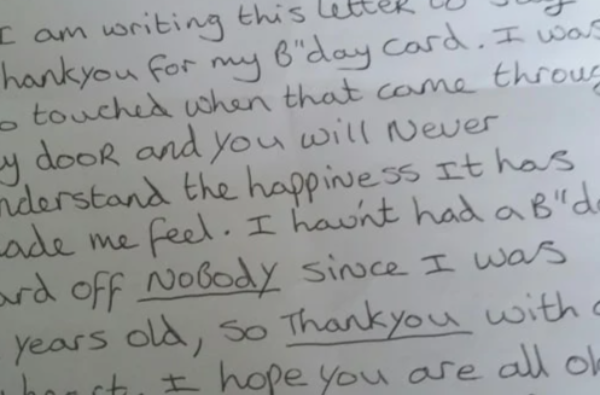 I am writing this letter to say
hankyou for my B"day card. I was
o touched when that came throug
y dooR and you will Never
nderstand the happiness It has
ade me feel. I hav'nt had a B"d
ard off NoBoDY since I was
years old, so Thankyou with a
heart. I hope you are all ok